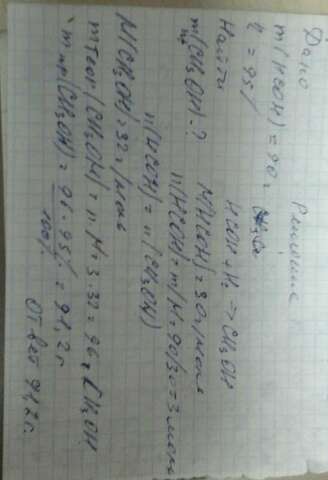 Дано
m(HCOH) = 90г
η = 95%
Найти
m(CH₃OH) - ?
Решение
HCOH + H₂ → CH₃OH
M(HCOH) = 30г/моль
n(HCOH) = m/M = 90/30 = 3 моль
n(HCOH) = n(CH₃OH)
M(CH₃OH) = 32г/моль
mтеор(CH₃OH) = n·M = 3·32 = 96г CH₃OH
mпр(CH₃OH) = 96·95% / 100% = 91,2г
Ответ 91,2г.